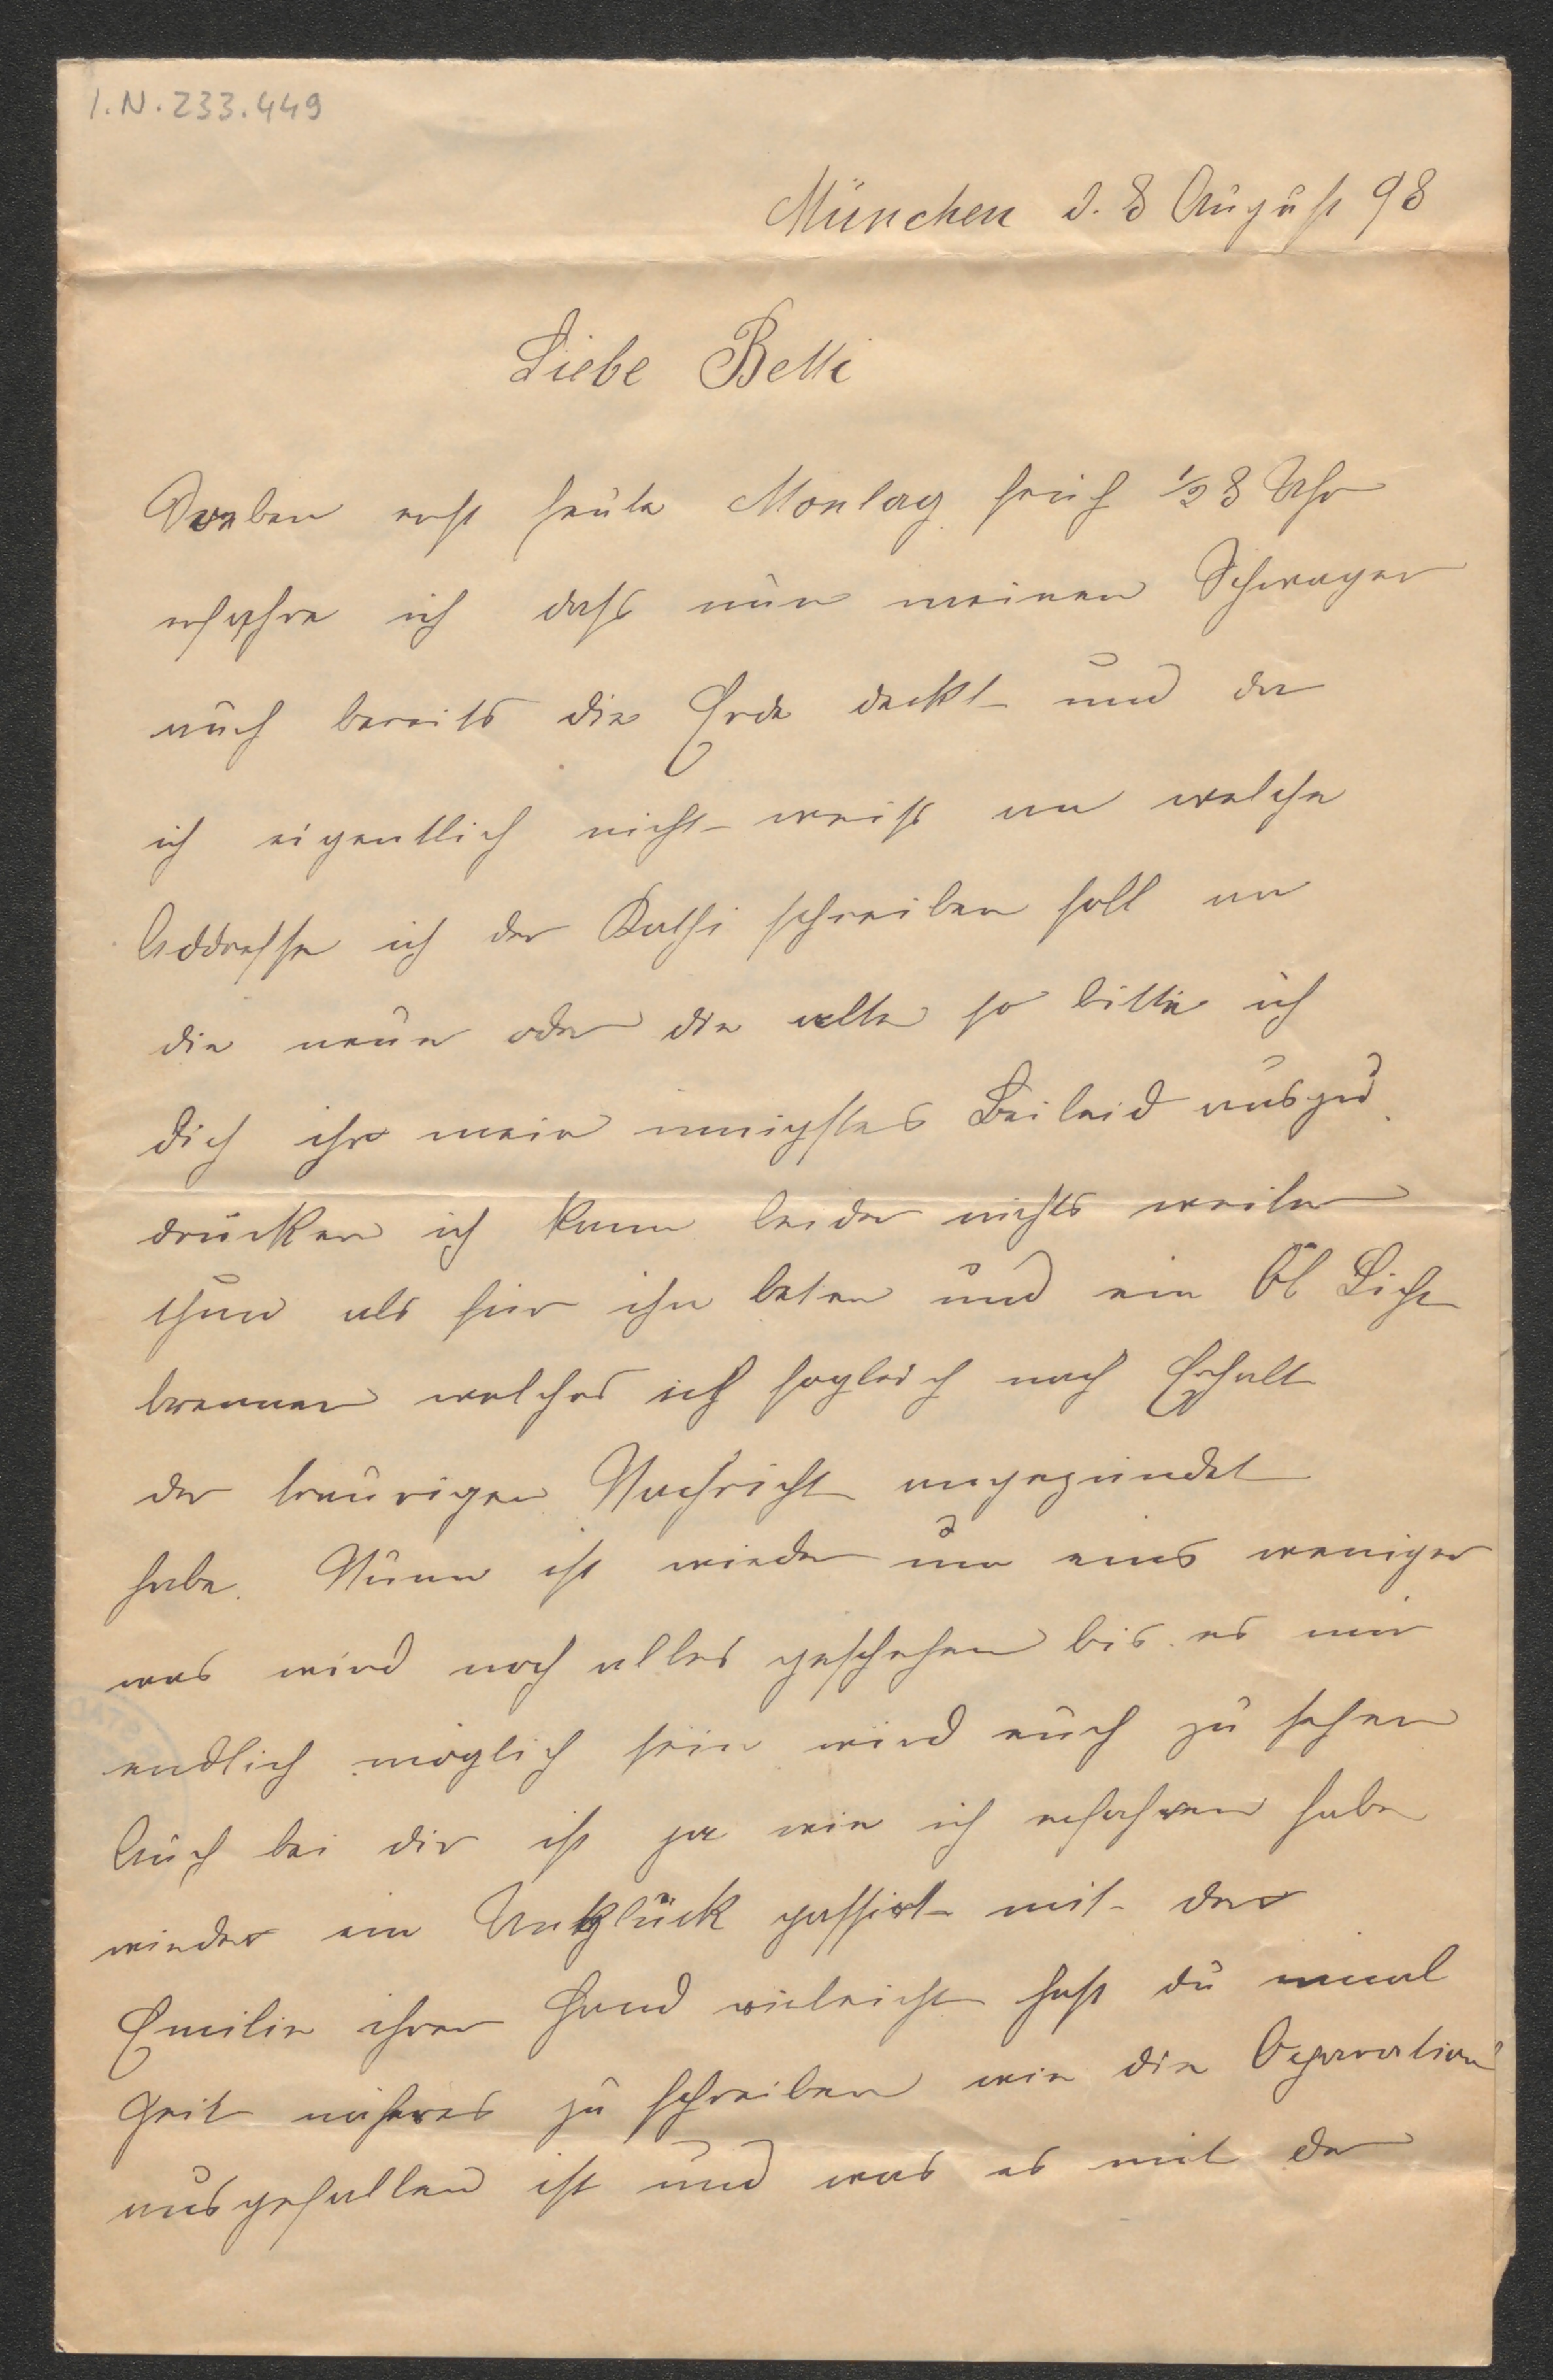 I.N. 233.449
München d. 8 August 98
Liebe Betti
Soeben erst heute Montag früh ½ 8 Uhr
erfahre ich daß nun meinen Schwager
auch bereits die Erde deckt und da
ich eigentlich nicht weiß an welche
Addresse ich der Kathi schreiben soll an
die neue oder die alte so bitte ich
dich ihr mein innigstes Beileid auszu
drücken ich kann leider nichts weiter
thun als für ihn beten und ein Öl Licht
brennen welches ich sogleich nach Erhalt
der traurigen Nachricht angezündet
habe. Nunn ist wieder um eins weniger
was wird noch alles geschehen bis es mir
endlich möglich sein wird euch zu sehen
Auch bei dir ist ja wie ich erfahren habe
wieder ein Unglück passirt mit der
Emilie ihrer Hand vieleicht hast du einmal
Zeit näheres zu schreiben wie die Operation
ausgefallen ist und was es mit der